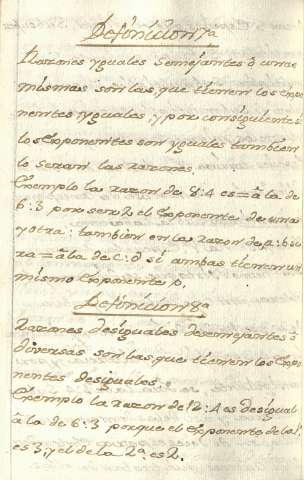 Definicion 7ª
Razones yguales Semejantes ò unas
mismas son las, que tienen los Expo
nentes yguales; y por consiguiente si
los Exponentes son yguales tambien
lo seran las razones.
Exemplo la razon de 8:4 es = à la de
6:3 por ser 2 el Exponente de una
y otra: tambien en la razon de a:b se
ra = à la de c:d si ambas tienen un
mismo Exponente p.
Definicion 8ª
Razones desiguales desemejantes ò
diversas son las, que tienen los Expo
nentes desiguales.
Exemplo la razon de 12:4 es desigual
à la de 6:3 porque el Exponente de la 1ª
es 3, y el de la 2ª es 2.